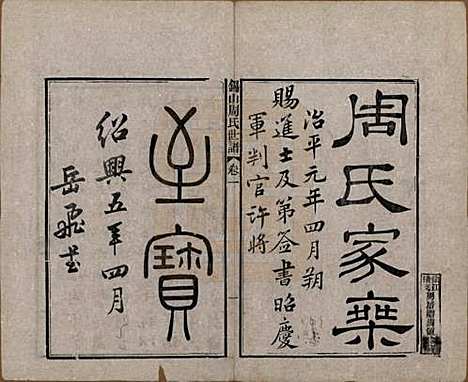 周氏家乘
治平元年四月朔
賜進士及第簽書昭慶
軍判官許將
錫山周氏世譜 卷一
一
至寶
紹興五年四月
岳飛書